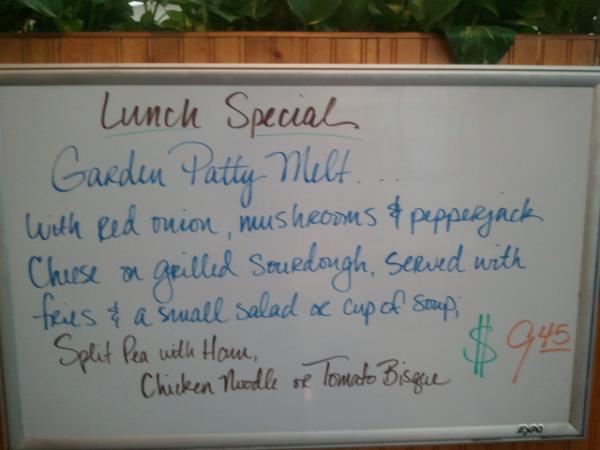 Lunch Special
Garden Patty Melt...
with red onion, mushrooms & pepperjack
Cheese on grilled Sourdough. Served with
fries & a small salad or cup of soup;
Split Pea with Ham,
Chicken Noodle or Tomato Bisque
$ 9.45
EXPO